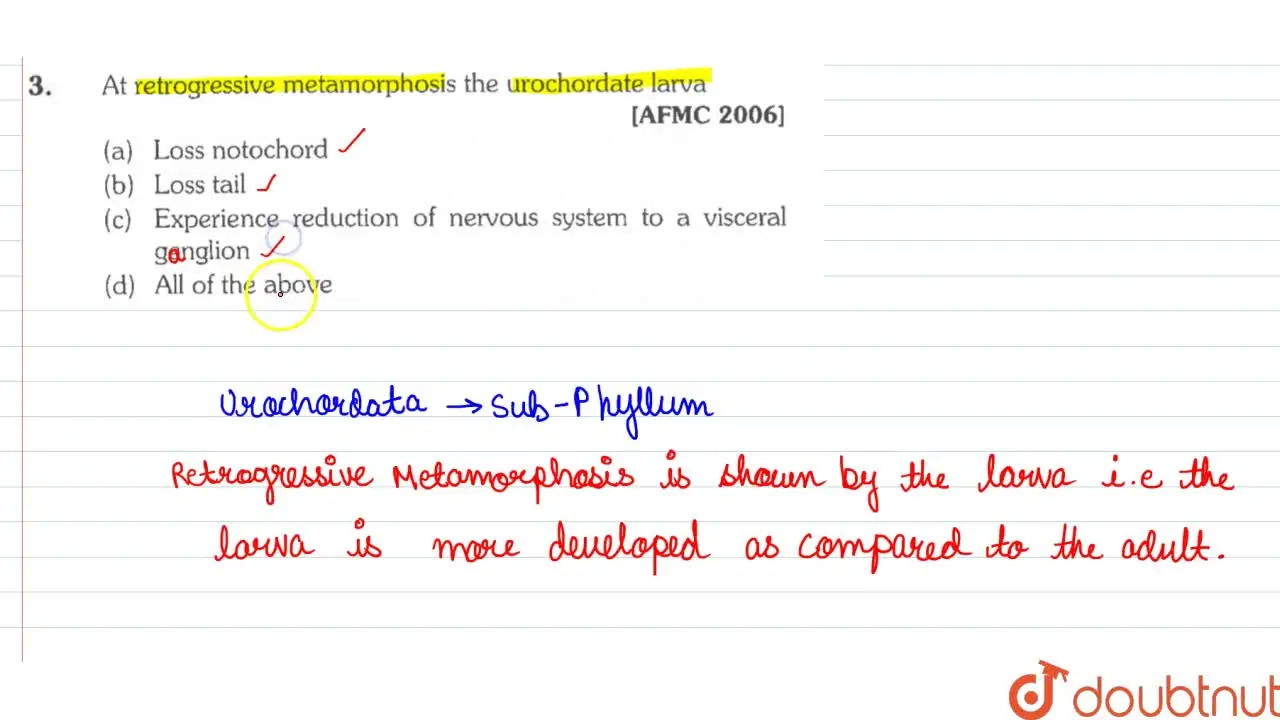 3. At retrogressive metamorphosis the urochordate larva
[AFMC 2006]
(a) Loss notochord
(b) Loss tail
(c) Experience reduction of nervous system to a visceral
ganglion
(d) All of the above
Urochordata → Sub-Phyllum
Retrogressive Metamorphosis is shown by the larva i.e the
larva is more developed as compared to the adult.
doubtnut